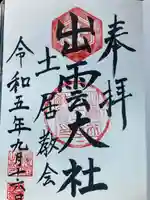 奉拝
出雲大社
土居教会
令和五年九月十六日